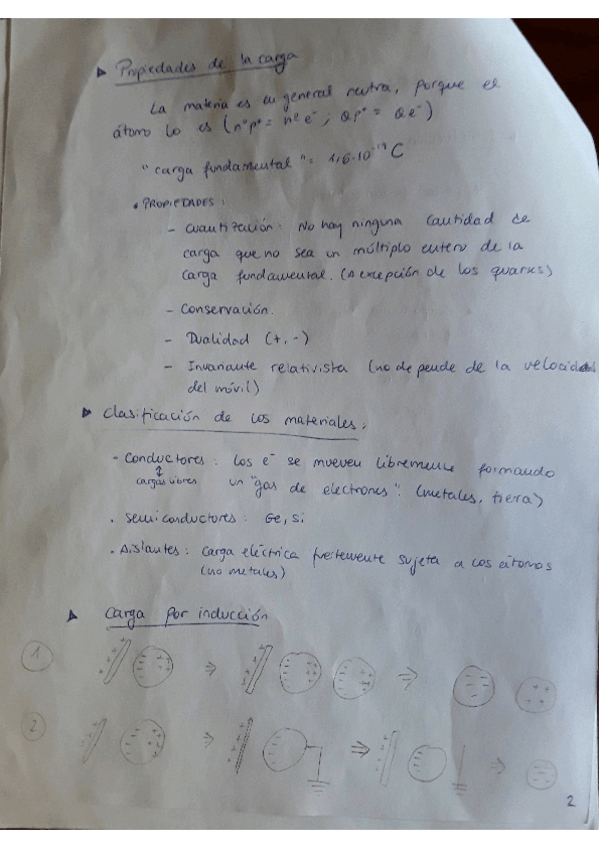 ▶ Propiedades de la carga
La materia es en general neutra, porque el
átomo lo es (nº p⁺ = nº e⁻ ; Q p⁺ = Q e⁻)
"carga fundamental" = 1,6·10⁻¹⁹ C
• PROPIEDADES:
- Cuantización: No hay ninguna cantidad de
carga que no sea un múltiplo entero de la
carga fundamental. (A excepción de los quarks)
- Conservación.
- Dualidad (+, -)
- Invariante relativista (no depende de la velocidad
del móvil)
▶ Clasificación de los materiales.
- Conductores: los e⁻ se mueven libremente formando
↕
cargas libres un "gas de electrones". (metales, tierra)
· Semiconductores: Ge, Si
· Aislantes: Carga eléctrica fuertemente sujeta a los átomos
(no metales)
▶ Carga por inducción
1
2
2